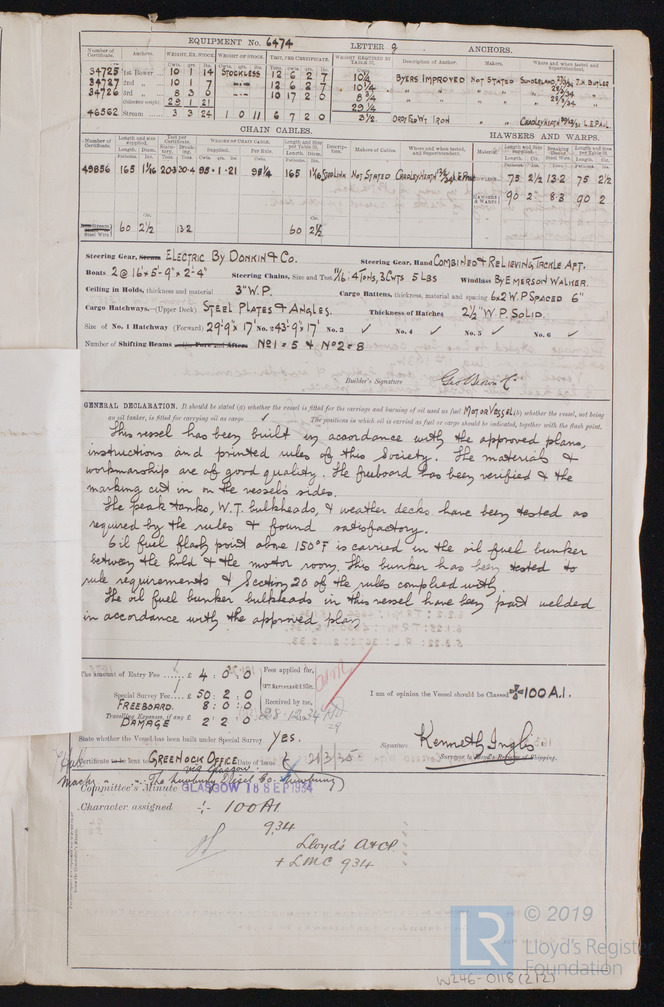 EQUIPMENT No. 6474 LETTER g ANCHORS.
Number of Certificate. Anchors. WEIGHT, EX. STOCK. WEIGHT OF STOCK. TEST, PER CERTIFICATE. WEIGHT REQUIRED BY TABLE Description of Anchor. Makers. Where and when tested and Superintendent.
34725 1st Bower 10 1 14 STOCKLESS 12 6 2 7 10¼ BYERS IMPROVED NOT STATED SUNDERLAND J.H. BUTLER
34727 2nd " 10 1 7 12 6 2 7 10¼
34726 3rd " 8 3 0 10 17 2 0 8¾
Collective weight 29 1 21 29¼
46562 Stream 3 3 24 1 0 11 6 7 2 0 3½ IRON CRADLEYHEATH L.E. PAUL
CHAIN CABLES. HAWSERS AND WARPS.
Number of Certificate. Length and size supplied. Test per Certificate. WEIGHT OF CHAIN CABLE. Length and Size per Table Descrip- tion. Makers of Cables. Where and when tested, and Superintendent. Material Length and Size Supplied. Breaking Length and Size per Table
49856 165 1 1/16 98¼ 165 1 1/16 STUD LINK NOT STATED CRADLEYHEATH 75 2½ 13·2 75 2½
HAWSERS & WARPS 90 2 8·3 90 2
Stream Steel Wire 60 2½ 13·2 60 2½
Steering Gear, Steam ELECTRIC BY DONKIN & CO. Steering Gear, Hand COMBINED & RELIEVING TACKLE AFT.
Boats 2 @ 16' x 5'-9" x 2'-4" Steering Chains, Size and Test 11/16 : 4 TONS, 3 CWTS 5 LBS Windlass BY EMERSON WALKER.
Ceiling in Holds, thickness and material 3" W.P. Cargo Battens, thickness, material and spacing 6x2 W.P SPACED 6"
Cargo Hatchways.—(Upper Deck) STEEL PLATES & ANGLES. Thickness of Hatches 2½" W.P. SOLID.
Size of No. 1 Hatchway (Forward) 29'-9" x 17' No. 2 43'-9" x 17' No. 3 ✓ No. 4 ✓ No. 5 ✓ No. 6 ✓
Number of Shifting Beams No1 = 5 & No2 = 8
Builder's Signature Geo Brown & Co.
GENERAL DECLARATION. It should be stated (a) whether the vessel is fitted for the carriage and burning of oil used as fuel MOTOR VESSEL (b) whether the vessel, not being
an oil tanker, is fitted for carrying oil as cargo ✓ The positions in which oil is carried as fuel or cargo should be indicated, together with the flash point.
This vessel has been built in accordance with the approved plans,
instructions and printed rules of this Society. The materials &
workmanship are of good quality. The freeboard has been verified & the
marking cut in on the vessel's sides.
The peak tanks, W.T. bulkheads, & weather decks have been tested as
required by the rules & found satisfactory.
Oil fuel flash point above 150°F is carried in the oil fuel bunker
between the hold & the motor room. This bunker has been tested to
rule requirements & Section 20 of the rules complied with.
The oil fuel bunker bulkheads in this vessel have been part welded
in accordance with the approved plan.
The amount of Entry Fee £ 4 : 0 : 0 Fees applied for,
Special Survey Fee £ 50 : 2 : 0
FREEBOARD. 8 : 0 : 0 Received by me,
Travelling Expenses, if any £
DAMAGE 2 : 2 : 0 28.12.34
I am of opinion the Vessel should be Classed ✠100A.1.
State whether the Vessel has been built under Special Survey YES.
Signature Kenneth Inglis
Surveyor to Lloyd's Register of Shipping.
Certificate to be sent to GREENOCK OFFICE Date of issue 21/3/35
via Glasgow.
The Newbury Diesel Co. Newbury
Committee's Minute GLASGOW 18 SEP 1934
Character assigned + 100A1
9.34
Lloyd's A&CP
+ LMC 9.34
LR © 2019
Lloyd's Register
Foundation
W246-0118 (2/2)